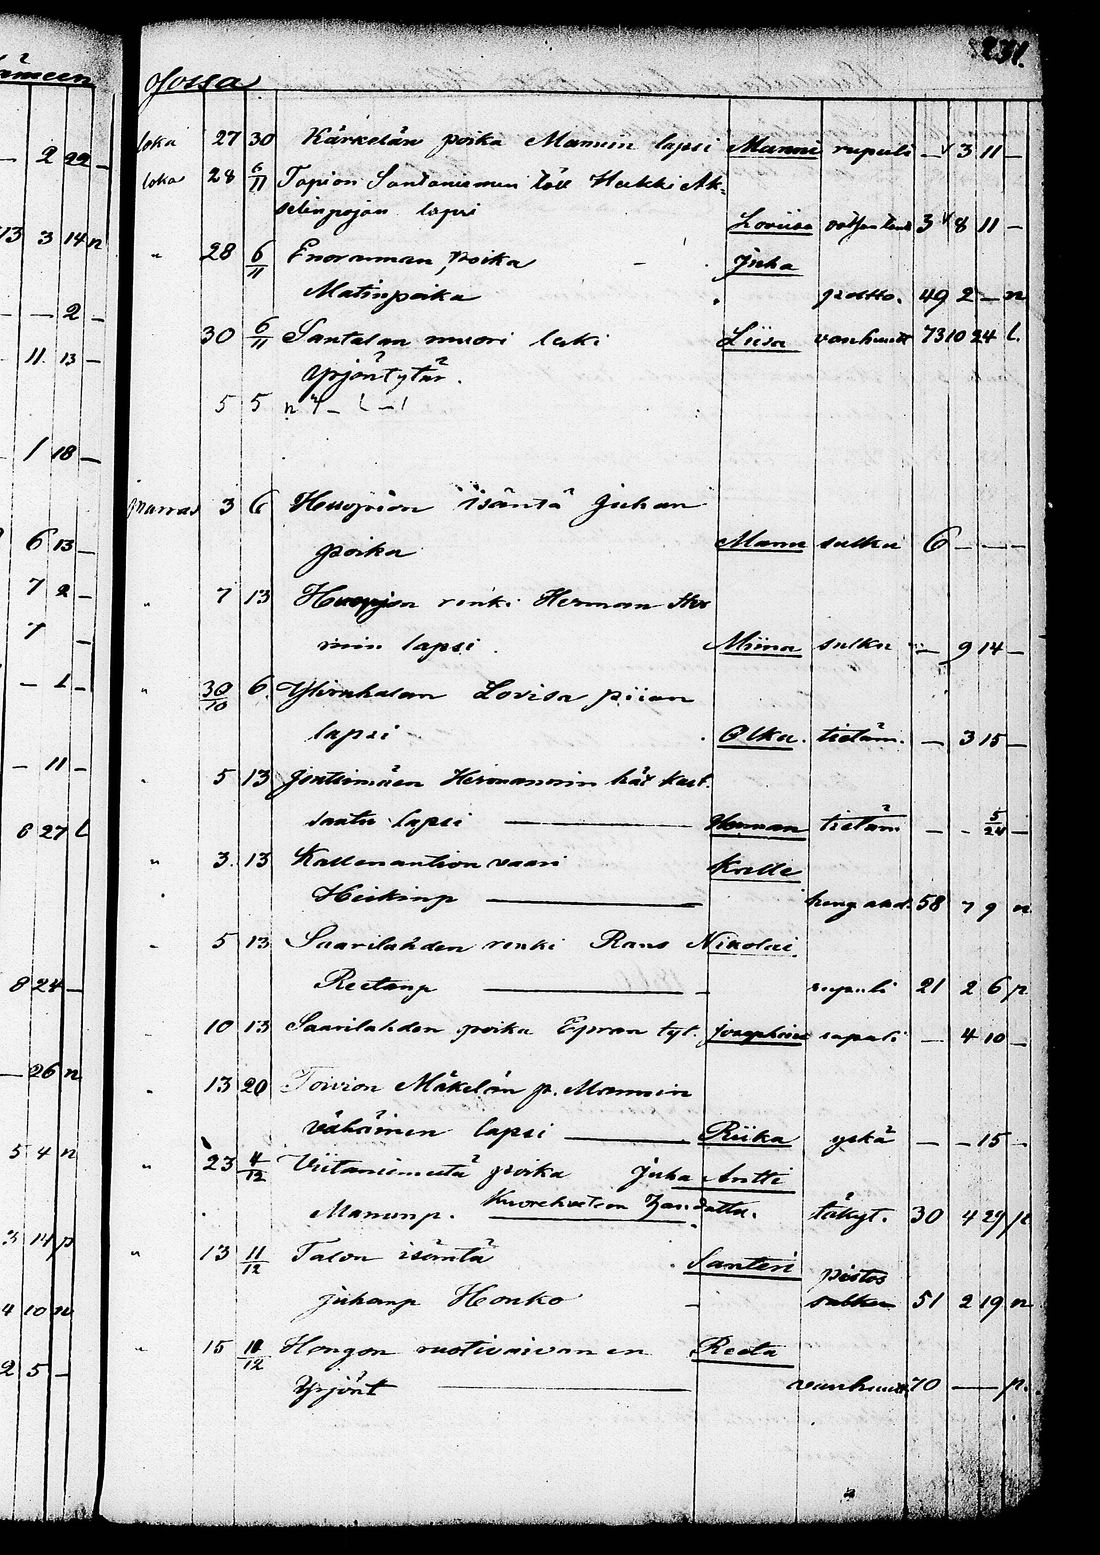 231.
ämeen
Jossa
loka 27 30 Kärkelän poika Mannin lapsi Manni rupuli – 3 11 –
loka 28 6/11 Tapion Santaniemen Heikki Ak=
selinpojan lapsi
Loviisa 3 8 11 –
" 28 6/11 Enorannan poika – Juha
Matinpoika poltto. 49 2 – n
30 6/11 Santalan muori leski Liisa vanhuus 73 10 24 l.
Yrjöntytär.
5 5
marras 3 6 Huopion isäntä Juhan
poika Mann sulku 6 – – –
" 7 13 renki Herman
min lapsi Miina sulku – 9 14 –
" 30/10 6 Lovisa piian
lapsi Olka. tietäm. – 3 15 –
" 5 13 Hermannin hät kast.
saatu lapsi — Herman tietäm – – 5/24 –
" 3 13 vaari Kalle
Heikinp — heng ahd. 58 7 9 n
" 5 13 Saarilahden renki Nikolai
Reetanp — rupuli 21 2 6 p
10 13 Saarilahden poika tyt. Josephina rupuli – 4 10 –
" 13 20 Toivion Mäkelän p. Mannin
vähäinen lapsi — Riika yskä – – 15 –
" 23 4/12 Viitaniemestä poika Juha Antti
Mananp. 30 4 29 p
" 13 11/12 Talon isäntä Santeri pistos
Juhanp Honko – sulku 51 2 19 n
" 15 11/12 Hongon ruotivaivanen Reeta
Yrjönt — vanhuus 70 – – p.
2 22 –
13 3 14 n
– – 2 –
11 13 –
1 18 –
6 13 –
7 2 –
7 –
– 1 –
– 11 –
6 27 l
8 24 –
– 26 n
5 4 n
3 14 p
4 10 n
2 5 –